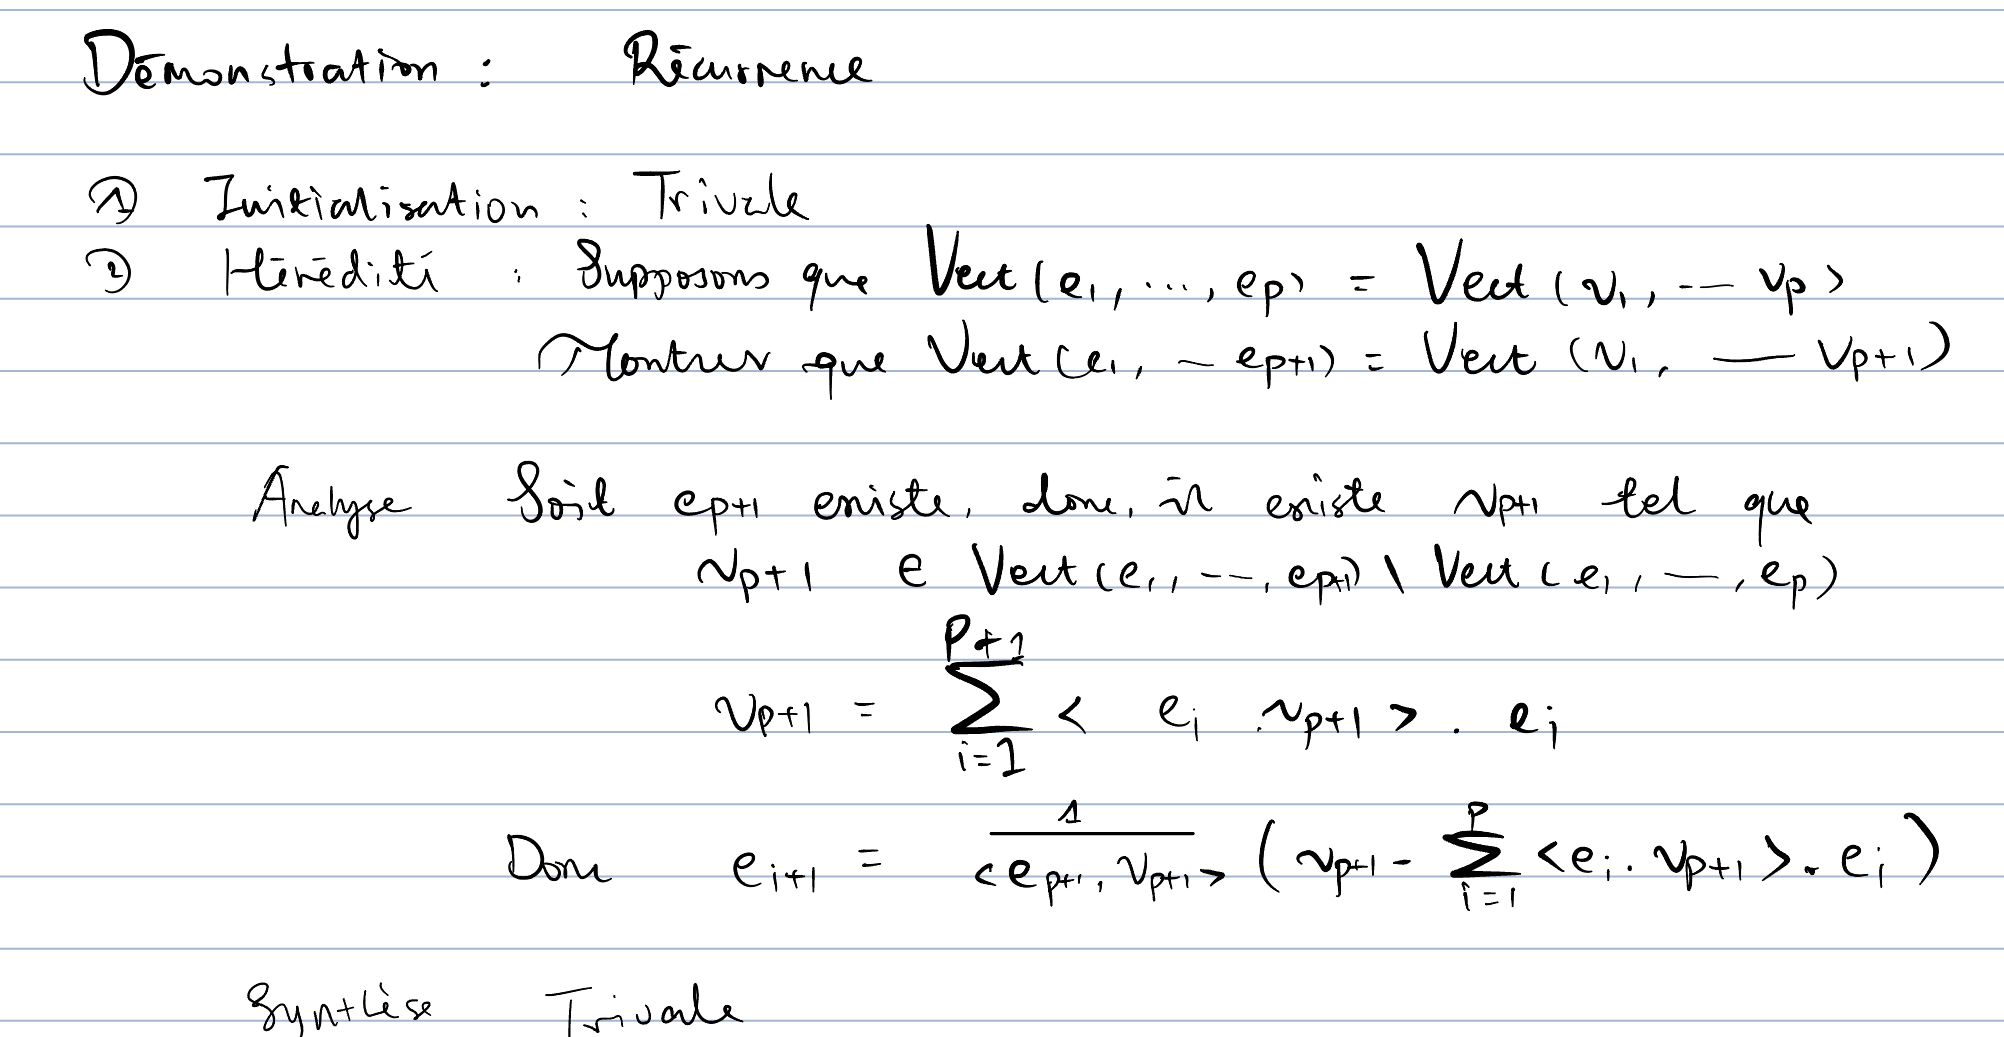 Démonstration : Récurrence
① Initialisation : Triviale
② Hérédité : Supposons que Vect (e1, ..., ep) = Vect (v1, -- vp)
Montrer que Vect (e1, — ep+1) = Vect (v1, — vp+1)
Analyse Soit ep+1 existe, donc, il existe vp+1 tel que
vp+1 ∈ Vect (e1, --, ep+1) \ Vect (e1, —, ep)
vp+1 = Σ_{i=1}^{p+1} < ei . vp+1 > . ei
Donc ei+1 = 1/<ep+1, vp+1> (vp+1 - Σ_{i=1}^{p} <ei . vp+1> . ei)
Synthèse Triviale